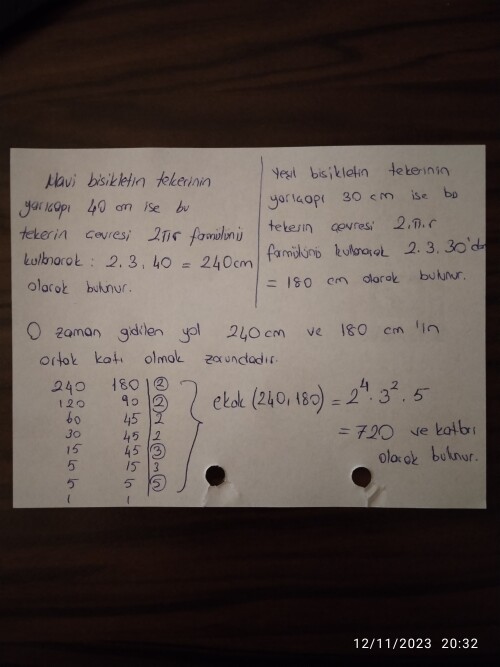 Mavi bisikletin tekerinin
yarıçapı 40 cm ise bu
tekerin çevresi 2πr formülünü
kullanarak : 2.3.40 = 240 cm
olarak bulunur.
Yeşil bisikletin tekerinin
yarıçapı 30 cm ise bu
tekerin çevresi 2.π.r
formülünü kullanarak 2.3.30'dan
= 180 cm olarak bulunur.
O zaman gidilen yol 240 cm ve 180 cm 'in
ortak katı olmak zorundadır.
240 180 | 2
120 90 | 2
60 45 | 2
30 45 | 2
15 45 | 3
5 15 | 3
5 5 | 5
1 1
ekok (240, 180) = 2⁴. 3². 5
= 720 ve katları
olarak bulunur.
12/11/2023 20:32